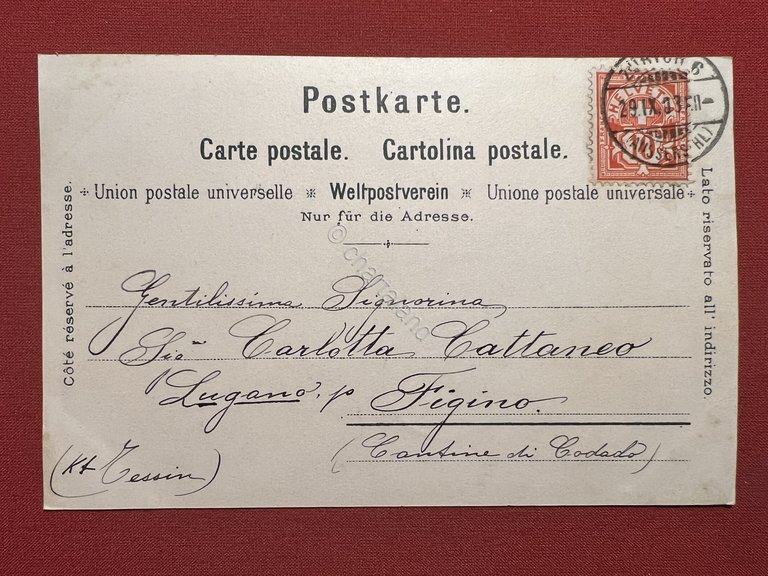 Postkarte.
Carte postale. Cartolina postale.
Union postale universelle * Weltpostverein * Unione postale universale
Nur für die Adresse.
Côté réservé à l'adresse.
Lato riservato all' indirizzo.
HELVETIA
ZÜRICH 6
29.IX.03.
(AUSSERSIHL)
© chartaland
Gentilissima Signorina
Carlotta Cattaneo
Lugano, p Figino.
(Kt Tessin) (Cantine di Codado)